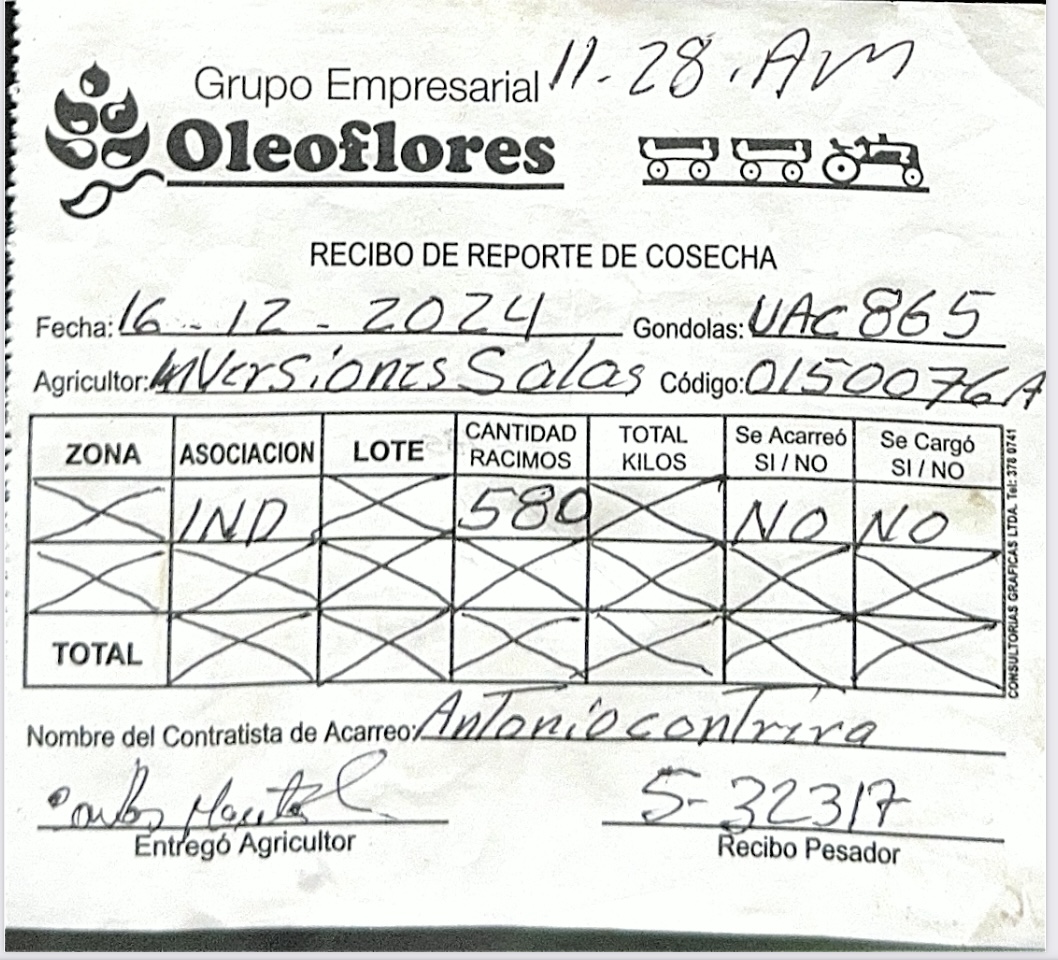 11-28. AM
Grupo Empresarial
Oleoflores
RECIBO DE REPORTE DE COSECHA
Fecha: 16-12-2024 Gondolas: UAC865
Agricultor: INVersiones Salas Código: 0150076A
ZONA ASOCIACION LOTE CANTIDAD RACIMOS TOTAL KILOS Se Acarreó SI / NO Se Cargó SI / NO
IND 580 NO NO
TOTAL
CONSULTORIAS GRAFICAS LTDA. Tel: 378 0741
Nombre del Contratista de Acarreo: Antonio contrira
Entregó Agricultor
5-32317
Recibo Pesador